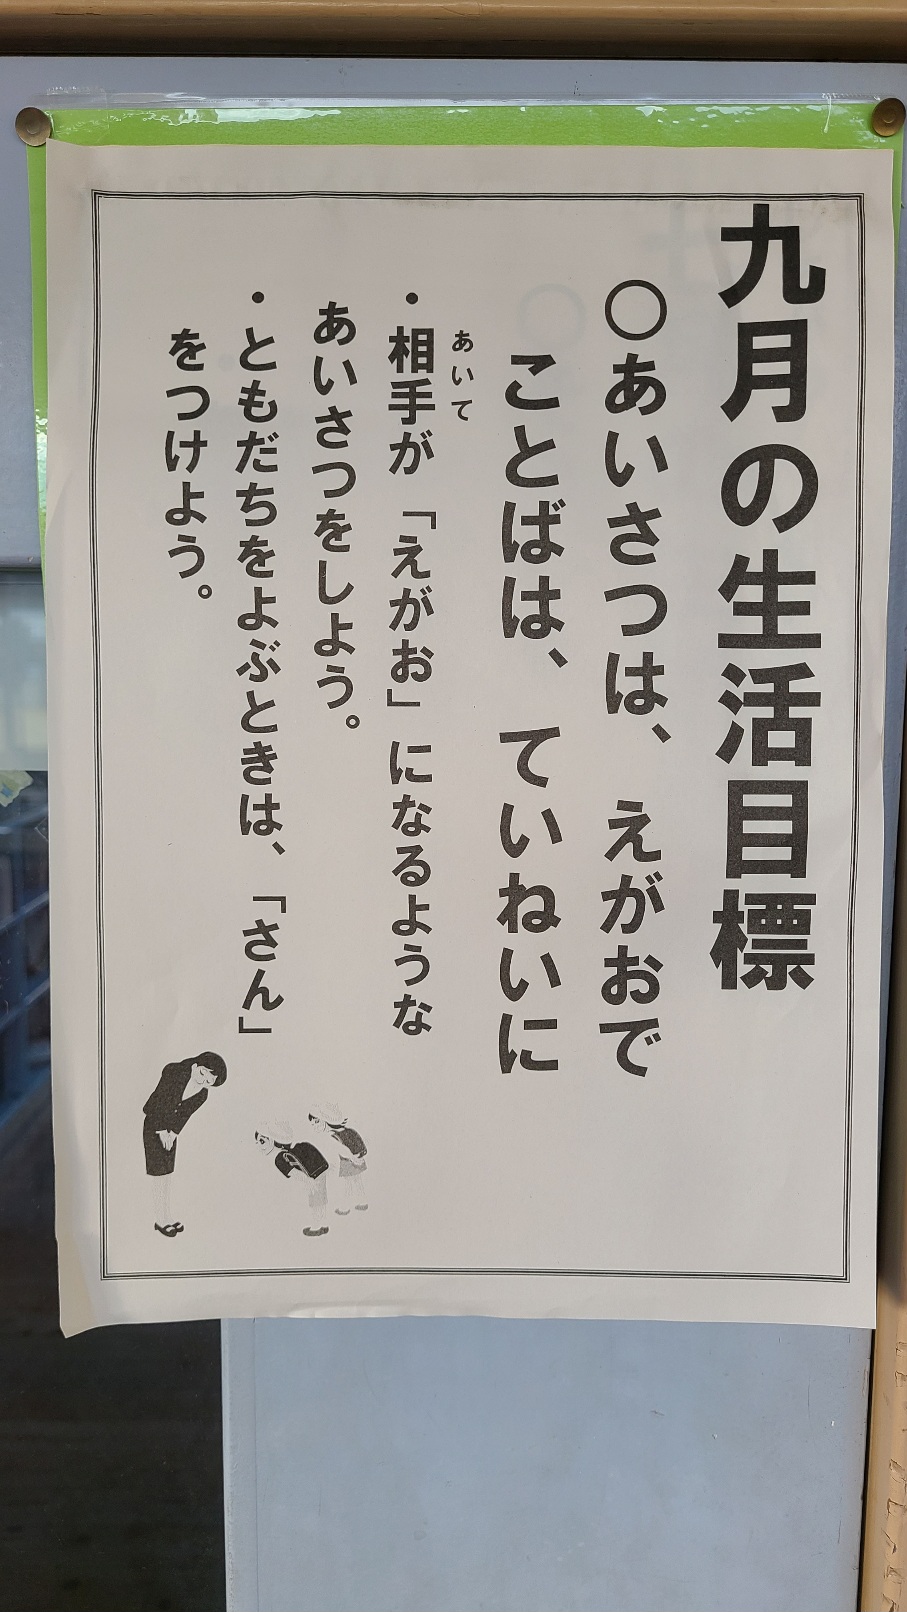 九月の生活目標
○あいさつは、えがおで
ことばは、ていねいに
あいて
・相手が「えがお」になるような
あいさつをしよう。
・ともだちをよぶときは、「さん」
をつけよう。